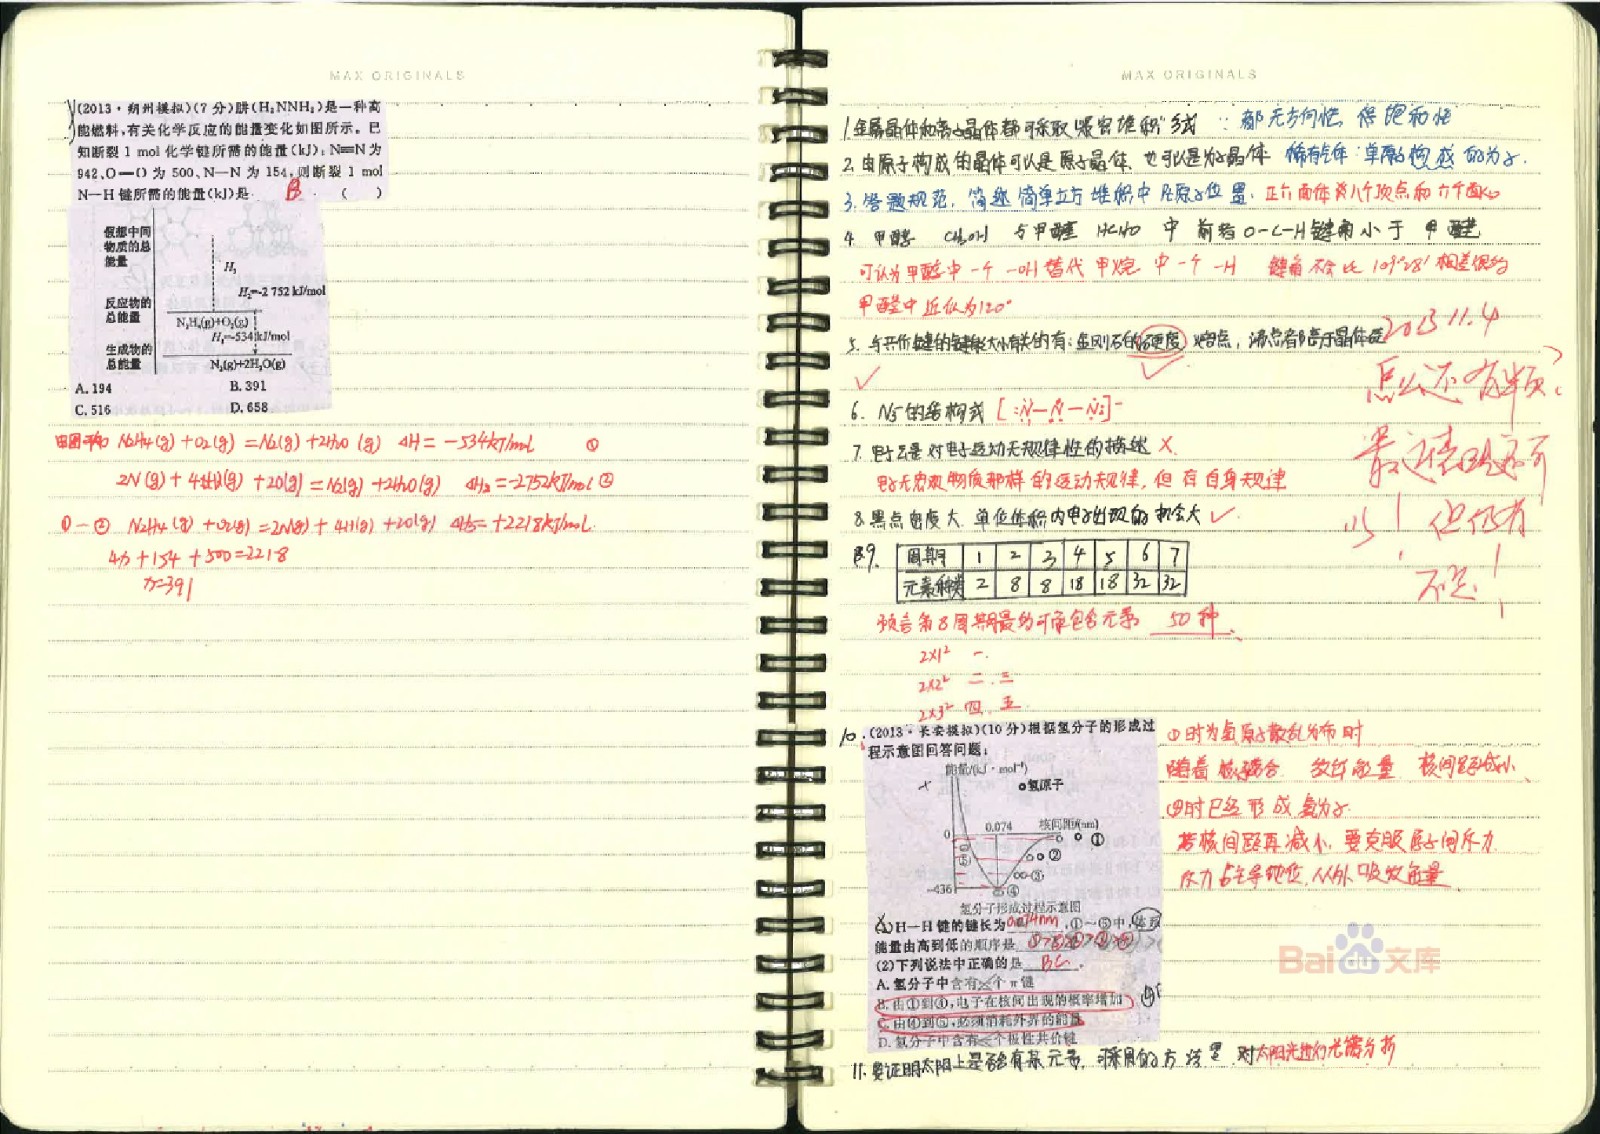 MAX ORIGINALS
(2013·朔州模拟)(7分)肼(H₂NNH₂)是一种高
能燃料,有关化学反应的能量变化如图所示。已
知断裂1 mol化学键所需的能量(kJ):N≡N为
942、O=O为500、N—N为154,则断裂1 mol
N—H键所需的能量(kJ)是 B ( )
假想中间
物质的总
能量
H₃
H₂=-2 752 kJ/mol
反应物的
总能量
N₂H₄(g)+O₂(g)
H₁=-534kJ/mol
生成物的
总能量
N₂(g)+2H₂O(g)
A. 194 B. 391
C. 516 D. 658
由图可知 N₂H₄(g)+O₂(g)=N₂(g)+2H₂O(g) ΔH=-534kJ/mol ①
2N(g)+4H(g)+2O(g)=N₂(g)+2H₂O(g) ΔH₂=-2752kJ/mol ②
①-② N₂H₄(g)+O₂(g)=2N(g)+4H(g)+2O(g) ΔH₃=+2218kJ/mol
4x+154+500=2218
x=391
MAX ORIGINALS
1.金属晶体和离子晶体都可采取"紧密堆积"方式 ∵都无方向性,饱和性
2.由原子构成的晶体可以是原子晶体,也可以是分子晶体 稀有气体:单原子构成的分子.
3.答题规范,简述简单立方堆积中原子位置.正六面体共八个顶点和六个面心
4. 甲醇 CH₃OH 与甲醛 HCHO 中 前者O-C-H键角小于甲醛
可认为甲醇中一个-OH替代甲烷中一个-H 键角不会比109°28′相差很多
甲醛中近似为120°
5.与共价键的键能大小有关的有:金刚石的硬度 熔点,沸点都高于晶体硅
2013 11.4
怎么还有半页?
6. N₃⁻的结构式 [:N̈—N̈—N̈:]⁻
最近情况还可
以!但仍有
不足!
7.电子云是对电子运动无规律性的描述 ×
电子无宏观物质那样的运动规律,但有自身规律
8.黑点密度大,单位体积内电子出现的机会大 ✓
9. 周期 1 2 3 4 5 6 7
元素种类 2 8 8 18 18 32 32
预言第8周期最多可能包含元素 50种
2×1² 一.
2×2² 二.三
2×3² 四.五
10.(2013·长安模拟)(10分)根据氢分子的形成过
程示意图回答问题:
能量/(kJ·mol⁻¹)
氢原子
0 0.074 核间距(nm)
①
⑤
②
③
-436 ④
氢分子形成过程示意图
(1)H—H键的键长为 0.074nm ,①~⑤中,体系
能量由高到低的顺序是
(2)下列说法中正确的是 BC .
A.氢分子中含有一个π键
B.由①到④,电子在核间出现的概率增加
C.由④到⑤,必须消耗外界的能量
D.氢分子中含有一个极性共价键
①时为氢原子散乱分布时
随着核靠合 放出能量 核间距减小
④时已经形成氢分子
若核间距再减小,要克服原子间斥力
斥力占主导地位,从外吸收能量
11.要证明太阳上是否含有某元素,可采用的方法是 对太阳光进行光谱分析
Bai 文库